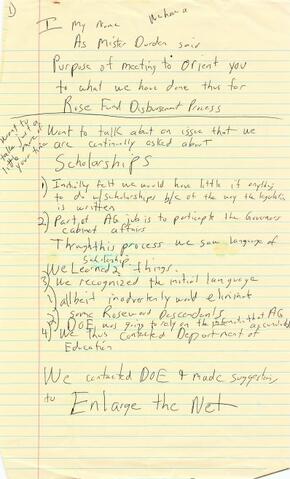 1)
I My Name We have a
As Mister Durden said
Purpose of meeting to Orient you
to what we have done thus for
Rose Fund Disbursment Process
Want to talk about a little more of your time
Want to talk about an issue that we
are continually asked about
Scholarships
1) Initially felt we would have little if anything
to do w/ scholarships b/c of the way the legislation
is written
2) Part of AG job is to participate the Governors
cabinet affairs
Through this process we saw language of
Scholarship
We Learned 2 things.
3) We recognized the initial language
1) allbeit inadvertently would eliminate
some Rosewood Descendants
2) DOE was going to rely on the information that AG
4) We Thus Contacted Department of
Education
We contacted DOE & made suggestions
to Enlarge the Net